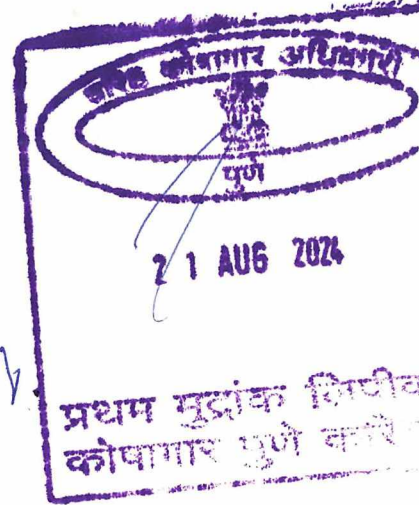 कोषागार अधिकारी
पुणे
21 AUG 2024
प्रथम मुद्रांक लिपीक
कोषागार पुणे करि